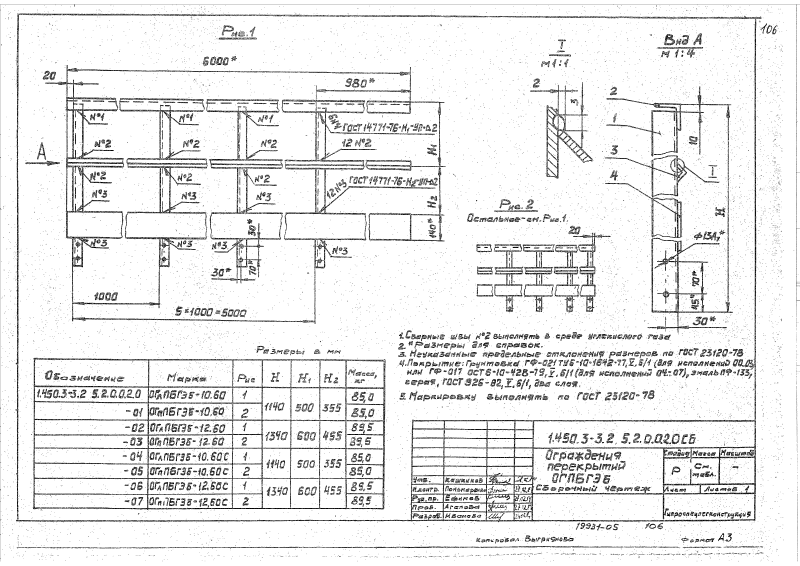 106
Рис.1
6000*
20
980*
№1
№1
№1
6 №2
ГОСТ 14771-76-Н1-УП-Δ2
А
№2
№2
№2
12 №2
Н1
№2
№2
№2
№3
№3
№3
12 №3
ГОСТ 14771-76-Н2-УП-Δ2
Н2
140*
№3
№3
№3
№3
30*
30*
70*
1000
5×1000=5000
I
М1:1
2
3
Вид А
М 1:4
2
1
3
4
I
10
Н
Ф13А7*
70*
45*
30*
Рис.2
Остальное-см.Рис.1.
20
1. Сварные швы №2 выполнять в среде углекислого газа
2. *Размеры для справок.
3. Неуказанные предельные отклонения размеров по ГОСТ 23120-78
4. Покрытие: Грунтовка ГФ-021 ТУ6-10-1642-77, V, Б/1 (для исполнений 00..03)
или ГФ-017 ОСТ 6-10-428-79, V, Б/1 (для исполнений 04..07), эмаль ПФ-133,
серая, ГОСТ 926-82, V, Б/1, два слоя.
5. Маркировку выполнять по ГОСТ 23120-78
Размеры в мм
Обозначение Марка Рис Н Н1 Н2 Масса, кг
1.450.3-3.2 5.2.0.0.2.0 ОГлПБГЭБ-10.60 1 1140 500 355 85,0
-01 ОГпПБГЭБ-10.60 2 85,0
-02 ОГлПБГЭБ-12.60 1 1340 600 455 89,5
-03 ОГпПБГЭБ-12.60 2 89,5
-04 ОГлПБГЭБ-10.60С 1 1140 500 355 85,0
-05 ОГпПБГЭБ-10.60С 2 85,0
-06 ОГлПБГЭБ-12.60С 1 1340 600 455 89,5
-07 ОГпПБГЭБ-12.60С 2 89,5
1.450.3-3.2 5.2.0.0.2.0 СБ
Ограждения
перекрытий
ОГПБГЭБ
Сборочный чертеж
Стадия Масса Масштаб
Р См. табл. –
Лист Листов 1
Утв. Кашников
Н.контр. Пономарева
Рук.пр. Ефимов
Пров. Агапова
Разраб. Иванова
Гипроспецлегконструкция
19931-05 106
Копировал. Выгрианова
Формат А3